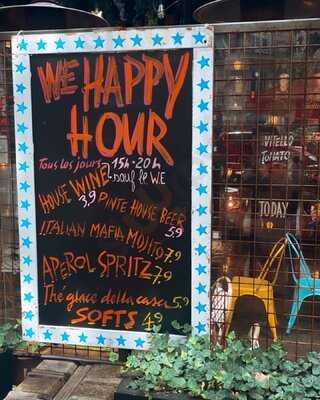 WE HAPPY
HOUR
Tous les jours 15h-20h
sauf le WE
HOUSE WINE 3,9
PINTE HOUSE BEER 5,9
ITALIAN MAFIA MOJITO 7,9
APEROL SPRITZ 7,9
Thé glacé della casa 5,9
SOFTS 4,9
VITELLO
TONATO
TODAY